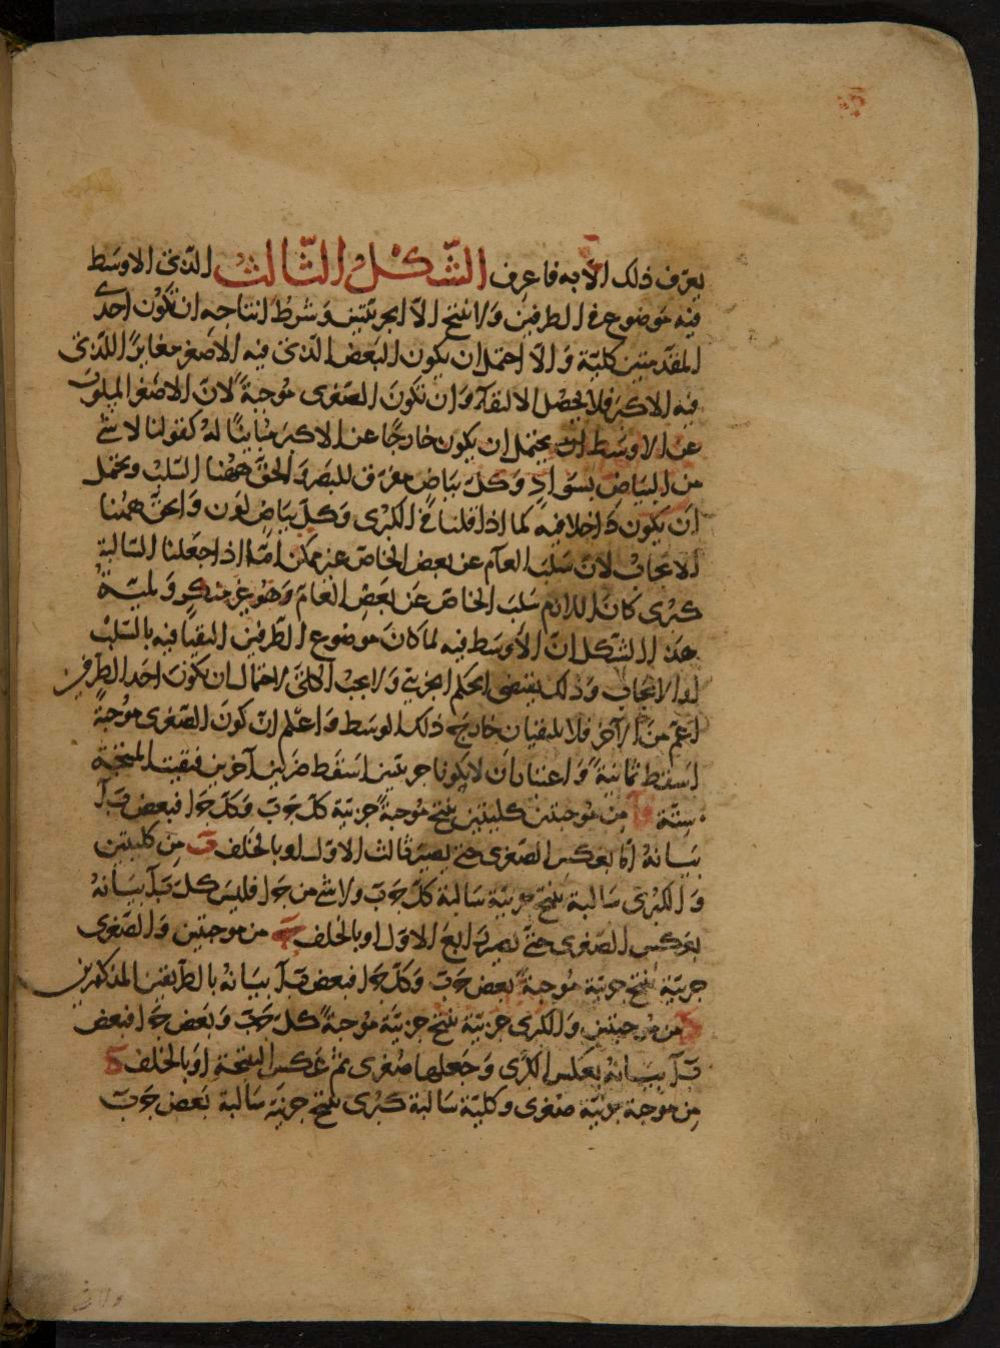 يعرف ذلك الا به فاعرف الشّكل الثّالث الذى الاوسط
فيه موضوع فى الطرفين ولا ينتج الا الجزئيتين وشرط انتاجه ان تكون احدى
المقدمتين كلية والا احتمل ان يكون البعض الذى فيه الاصغر مغايرا للذى
فيه الاكبر فلا يحصل الالتقاء وان تكون الصغرى موجبة لان الاصغر المسلوب
عن الاوسط يحتمل ان يكون خارجا عن الاكبر مباينا له كقولنا لا شئ
من البياض بسواد وكل بياض مفرق للبصر والحق ههنا السلب ويحتمل
ان يكون داخلا فيه كما اذا قلنا فى الكبرى وكل بياض لون والحق ههنا
الايجاب لان سلب العام عن بعض الخاص غير ممكن اما اذا جعلنا السالبة
كبرى كان اللازم سلب الخاص عن بعض العام وهو غير منكر ولمية
هذا الشكل ان الاوسط فيه لما كان موضوع الطرفين التقيا فيه بالسلب
او الايجاب وذلك يقتضى الحكم الجزئى ولا يجب الكلى لاحتمال ان يكون احد الطرفين
اعم من الآخر فلا يلتقيان خارج ذلك الوسط واعلم ان كون الصغرى موجبة
اسقط ثمانية واعتبار ان لا يكونا جزئيتين اسقط ضربين آخرين فبقيت المنتجة
ستة آ من موجبتين كليتين ينتج موجبة جزئية كل ج ب وكل ج ا فبعض ب ا
بيانه اما بعكس الصغرى حتى يصير ثالث الاول او بالخلف ب من كليتين
والكبرى سالبة ينتج جزئية سالبة كل ج ب ولا شئ من ج ا فليس كل ب ا بيانه
بعكس الصغرى حتى يصير رابع الاول او بالخلف ج من موجبتين والصغرى
جزئية ينتج جزئية موجبة بعض ج ب وكل ج ا فبعض ب ا بيانه بالطريقين المذكورين
د من موجبتين والكبرى جزئية ينتج جزئية موجبة كل ج ب وبعض ج ا فبعض
ب ا بيانه بعكس الكبرى وجعلها صغرى ثم عكس النتيجة او بالخلف ه
من موجبة جزئية صغرى وكلية سالبة كبرى ينتج جزئية سالبة بعض ج ب